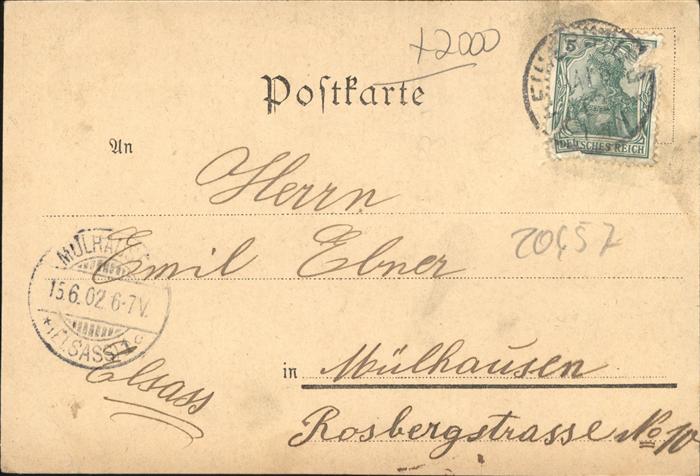 +2000
5
Postkarte
DEUTSCHES REICH
An
Herrn
Emil Ebner
20457
MÜLHAUSEN
15.6.02.6-7V.
*(ELSASS)1c
in Mülhausen
Elsass
Rosbergstrasse No 10